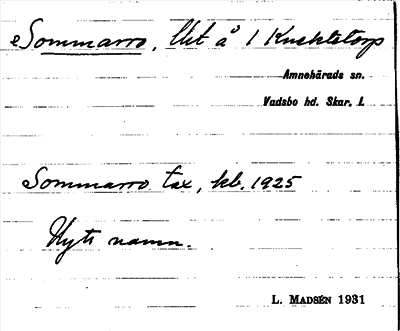 Sommarro, lht å 1 Knektetorp
Amnehärads sn.
Vadsbo hd. Skar. l.
Sommarro tax, kb. 1925
Nytt namn.
L. MADSÉN 1931